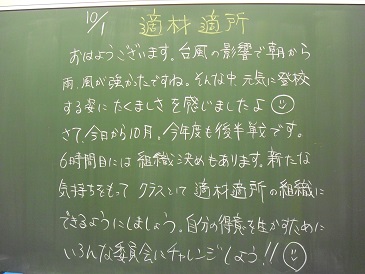 10/1 適材適所
おはようございます。台風の影響で朝から
雨、風が強かったですね。そんな中、元気に登校
する姿にたくましさを感じましたよ
さて、今日から10月。今年度も後半戦です。
6時間目には組織決めもあります。新たな
気持ちをもって クラスとして 適材適所の組織に
できるようにしましょう。自分の得意を生かすために
いろんな委員会にチャレンジしよう!!